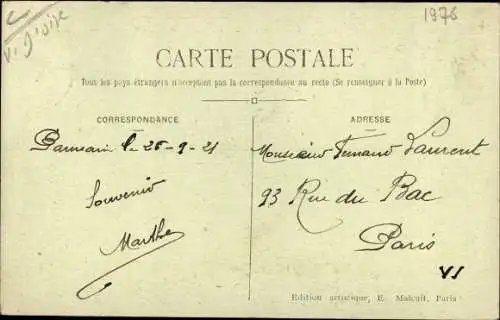 V. d'oise
1976
CARTE POSTALE
Tous les pays étrangers n'acceptent pas la correspondance au recto (Se renseigner à la Poste)
CORRESPONDANCE
le 26-9-21
Souvenir
Marthe
ADRESSE
Monsieur Fernand Laurent
93 Rue du Bac
Paris
VI
Edition artistique, E. Malcuit, Paris